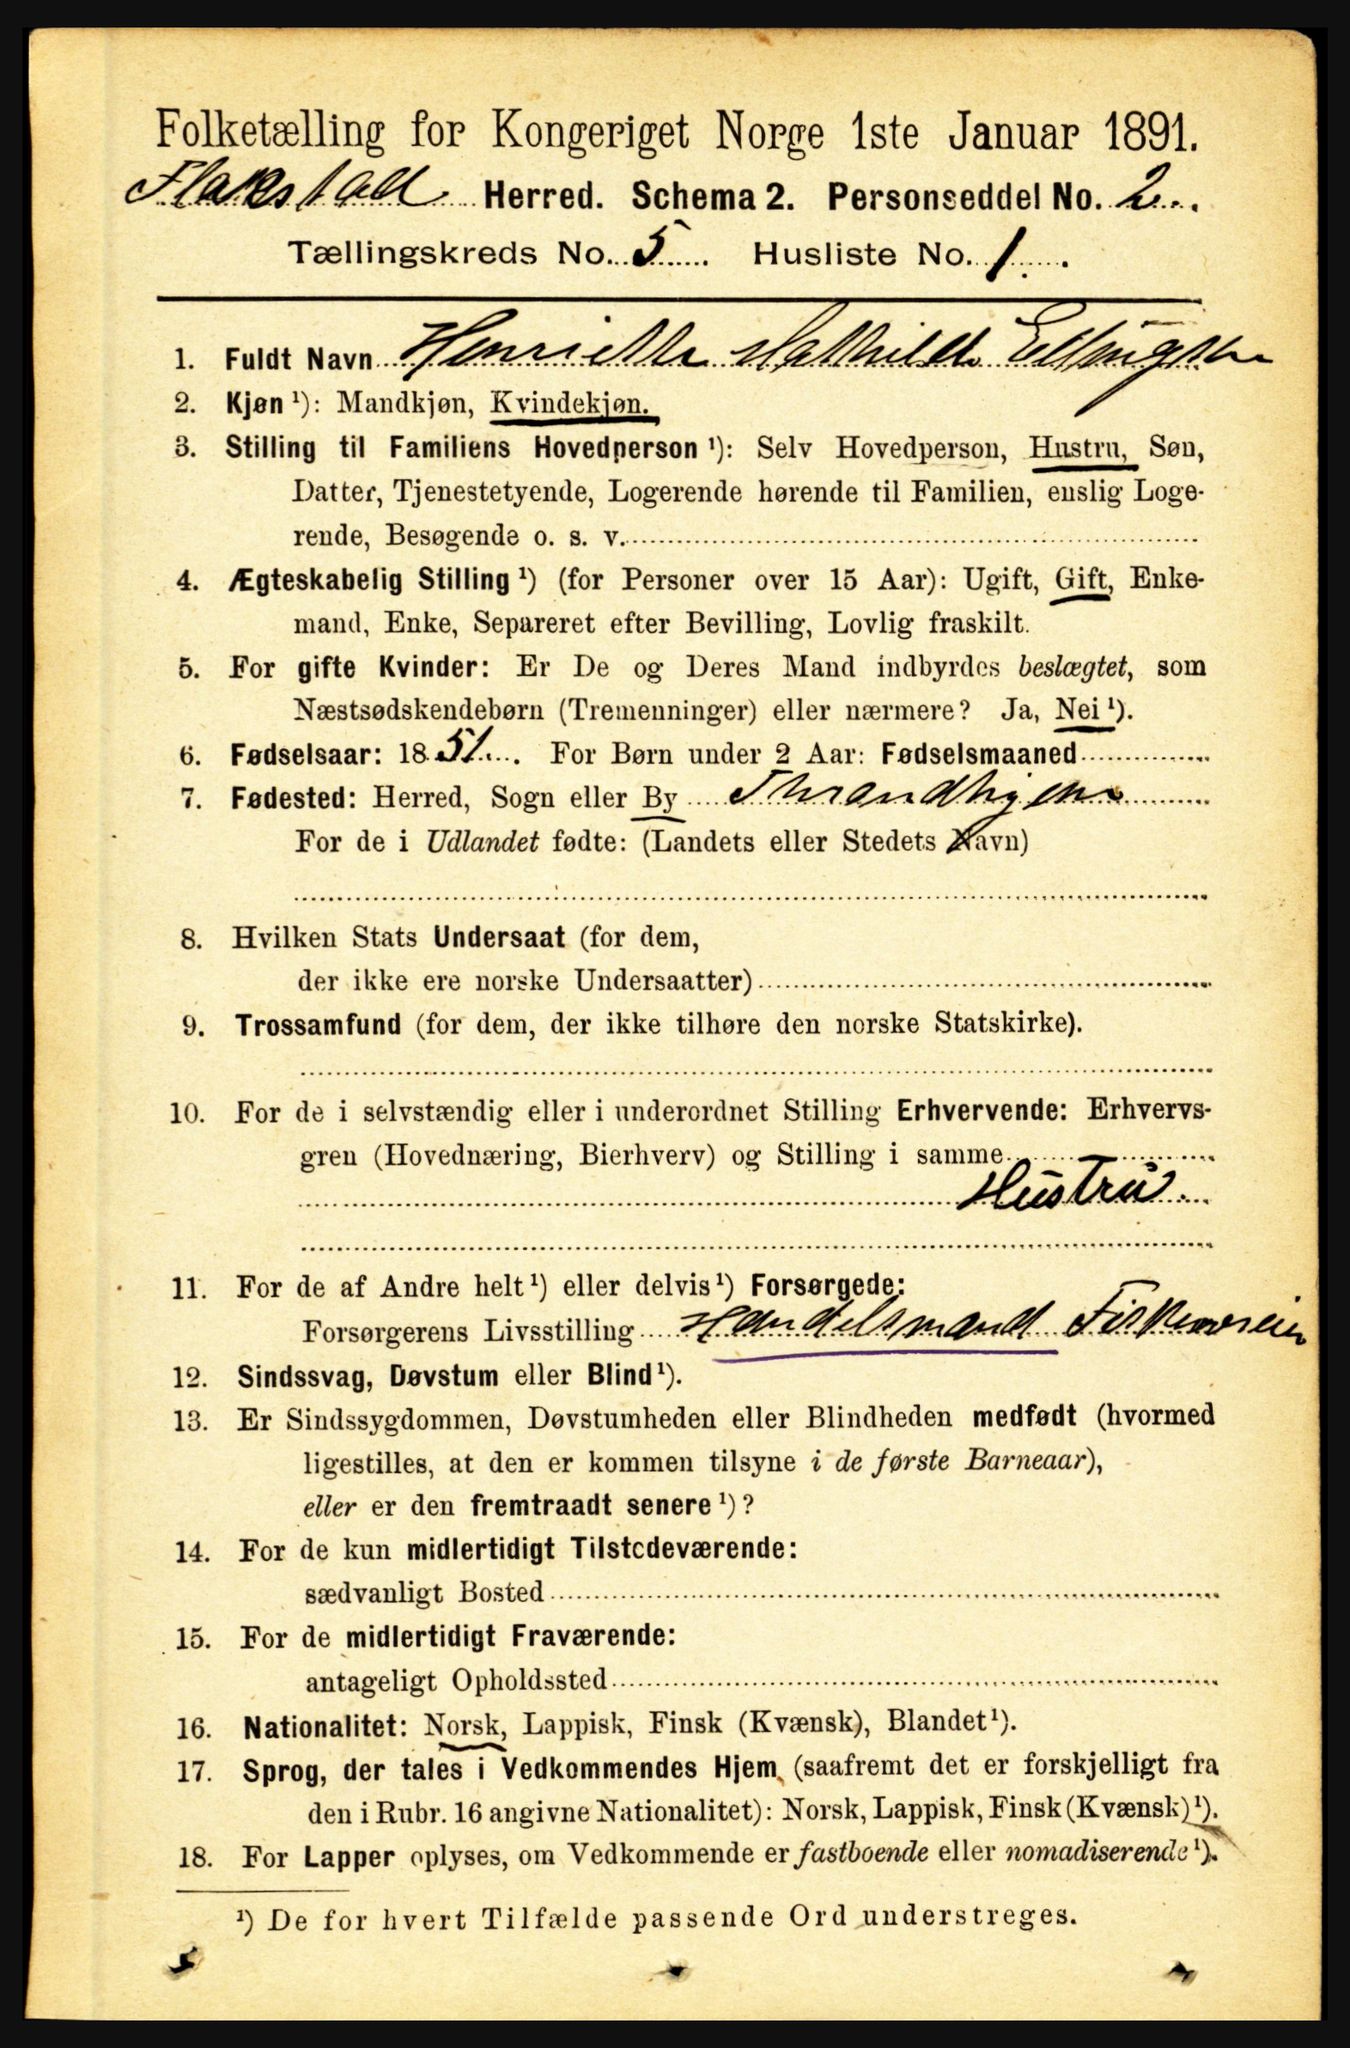 Folketælling for Kongeriget Norge 1ste Januar 1891.
Flakstad Herred. Schema 2. Personseddel No. 2
Tællingskreds No. 5 Husliste No. 1.
1. Fuldt Navn Henriette Mathilde Ellingsen
2. Kjøn ¹): Mandkjøn, Kvindekjøn.
3. Stilling til Familiens Hovedperson ¹): Selv Hovedperson, Hustru, Søn,
Datter, Tjenestetyende, Logerende hørende til Familien, enslig Loge-
rende, Besøgende o. s. v.
4. Ægteskabelig Stilling ¹) (for Personer over 15 Aar): Ugift, Gift, Enke-
mand, Enke, Separeret efter Bevilling, Lovlig fraskilt.
5. For gifte Kvinder: Er De og Deres Mand indbyrdes beslægtet, som
Næstsødskendebørn (Tremenninger) eller nærmere? Ja, Nei ¹).
6. Fødselsaar: 1851. For Børn under 2 Aar: Fødselsmaaned
7. Fødested: Herred, Sogn eller By Thrandhjem
For de i Udlandet fødte: (Landets eller Stedets Navn)
8. Hvilken Stats Undersaat (for dem,
der ikke ere norske Undersaatter)
9. Trossamfund (for dem, der ikke tilhøre den norske Statskirke).
10. For de i selvstændig eller i underordnet Stilling Erhvervende: Erhvervs-
gren (Hovednæring, Bierhverv) og Stilling i samme
Hustru.
11. For de af Andre helt ¹) eller delvis ¹) Forsørgede:
Forsørgerens Livsstilling Handelsmand Fiskeværeier
12. Sindssvag, Døvstum eller Blind ¹).
13. Er Sindssygdommen, Døvstumheden eller Blindheden medfødt (hvormed
ligestilles, at den er kommen tilsyne i de første Barneaar),
eller er den fremtraadt senere ¹)?
14. For de kun midlertidigt Tilstedeværende:
sædvanligt Bosted
15. For de midlertidigt Fraværende:
antageligt Opholdssted
16. Nationalitet: Norsk, Lappisk, Finsk (Kvænsk), Blandet ¹).
17. Sprog, der tales i Vedkommendes Hjem (saafremt det er forskjelligt fra
den i Rubr. 16 angivne Nationalitet): Norsk, Lappisk, Finsk (Kvænsk) ¹).
18. For Lapper oplyses, om Vedkommende er fastboende eller nomadiserende ¹).
¹) De for hvert Tilfælde passende Ord understreges.